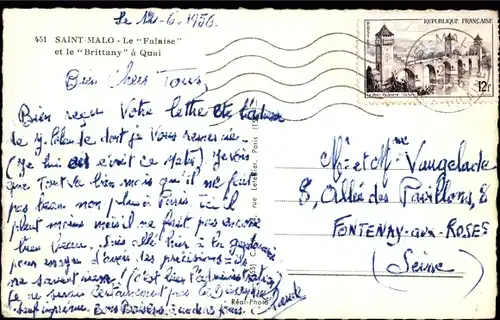 le 12-6-1956
451 SAINT-MALO - Le "Falaise"
et le "Brittany" à Quai
RÉPUBLIQUE FRANÇAISE
12F
Bien Chers Tous,
Bien reçu Votre lettre et
dont je Vous remercie
(Je lui ai écrit ce matin) Je vois
que Tout va bien mais qu'il ne fait
pas beau non plus à Paris ici il
pleut moins mais il ne fait pas encore
bien beau. Suis allé hier à la gendarmerie
pour essayer d'avoir des précisions ils
ne savent rien! (c'est bien l'administration)
Je ne serai certainement pas là Dimanche
sauf imprévu. Bons Baisers à un de ces jours.
Mr et Mme Vangelade
8, Allée des Pavillons, 8
FONTENAY-aux-ROSES
(Seine)
rue Letellier, Paris
Réal-Photo